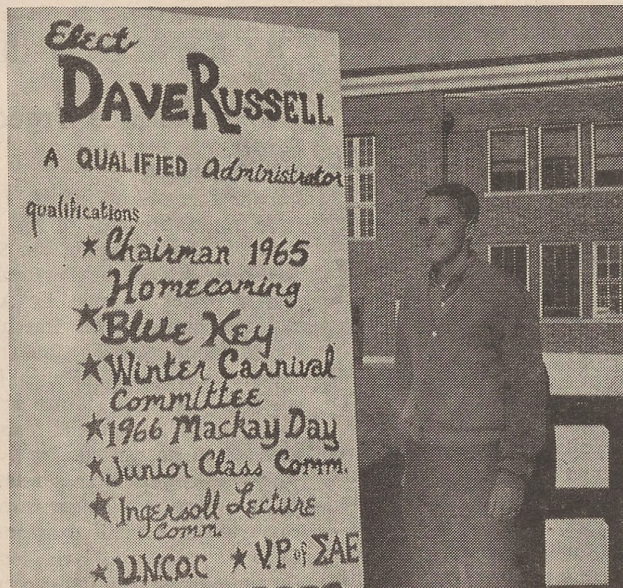 Elect
DAVE RUSSELL
A QUALIFIED Administrator
qualifications
★ Chairman 1965
Homecoming
★ Blue Key
★ Winter Carnival
Committee
★ 1966 Mackay Day
★ Junior Class Comm.
★ Ingersoll Lecture
Comm.
★ U.N.C.O.C ★ V.P of ΣAE